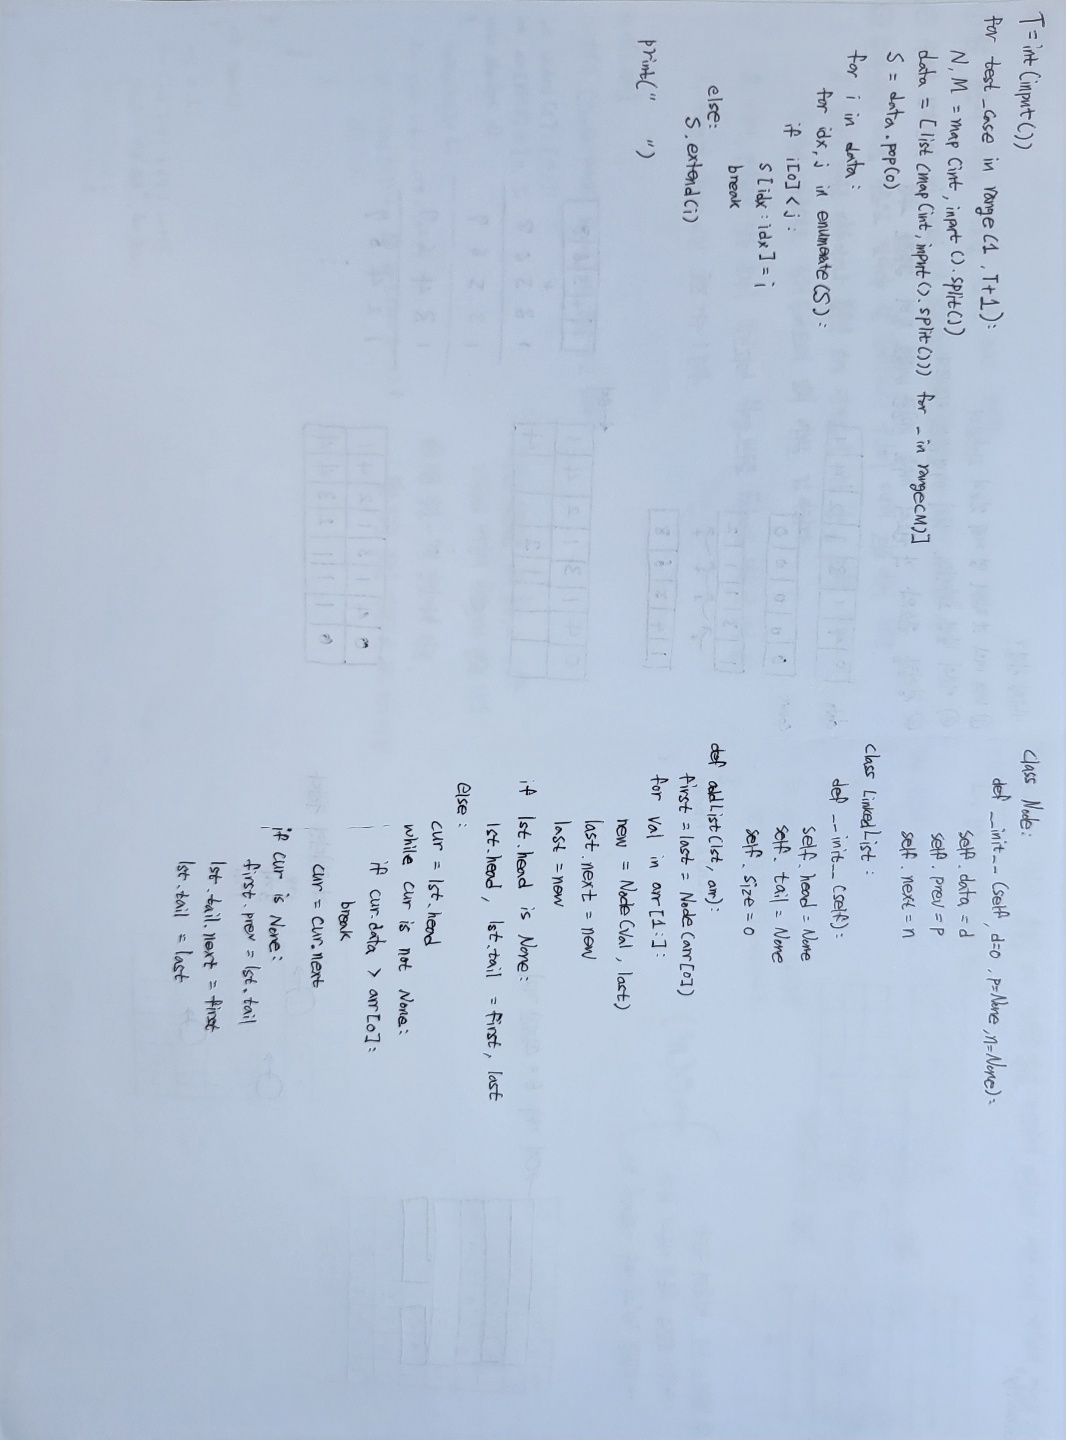 T = int(input())
for test_case in range(1, T+1):
N, M = map(int, input().split())
data = [list(map(int, input().split())) for _ in range(M)]
S = data.pop(0)
for i in data:
for idx, j in enumerate(S):
if i[0] < j:
S[idx:idx] = i
break
else:
S.extend(i)
print(" ")
class Node:
def __init__(self, d=0, p=None, n=None):
self.data = d
self.prev = p
self.next = n
class LinkedList:
def __init__(self):
self.head = None
self.tail = None
self.size = 0
def addList(lst, arr):
first = last = Node(arr[0])
for val in arr[1:]:
new = Node(val, last)
last.next = new
last = new
if lst.head is None:
lst.head, lst.tail = first, last
else:
cur = lst.head
while cur is not None:
if cur.data > arr[0]:
break
cur = cur.next
if cur is None:
first.prev = lst.tail
lst.tail.next = first
lst.tail = last